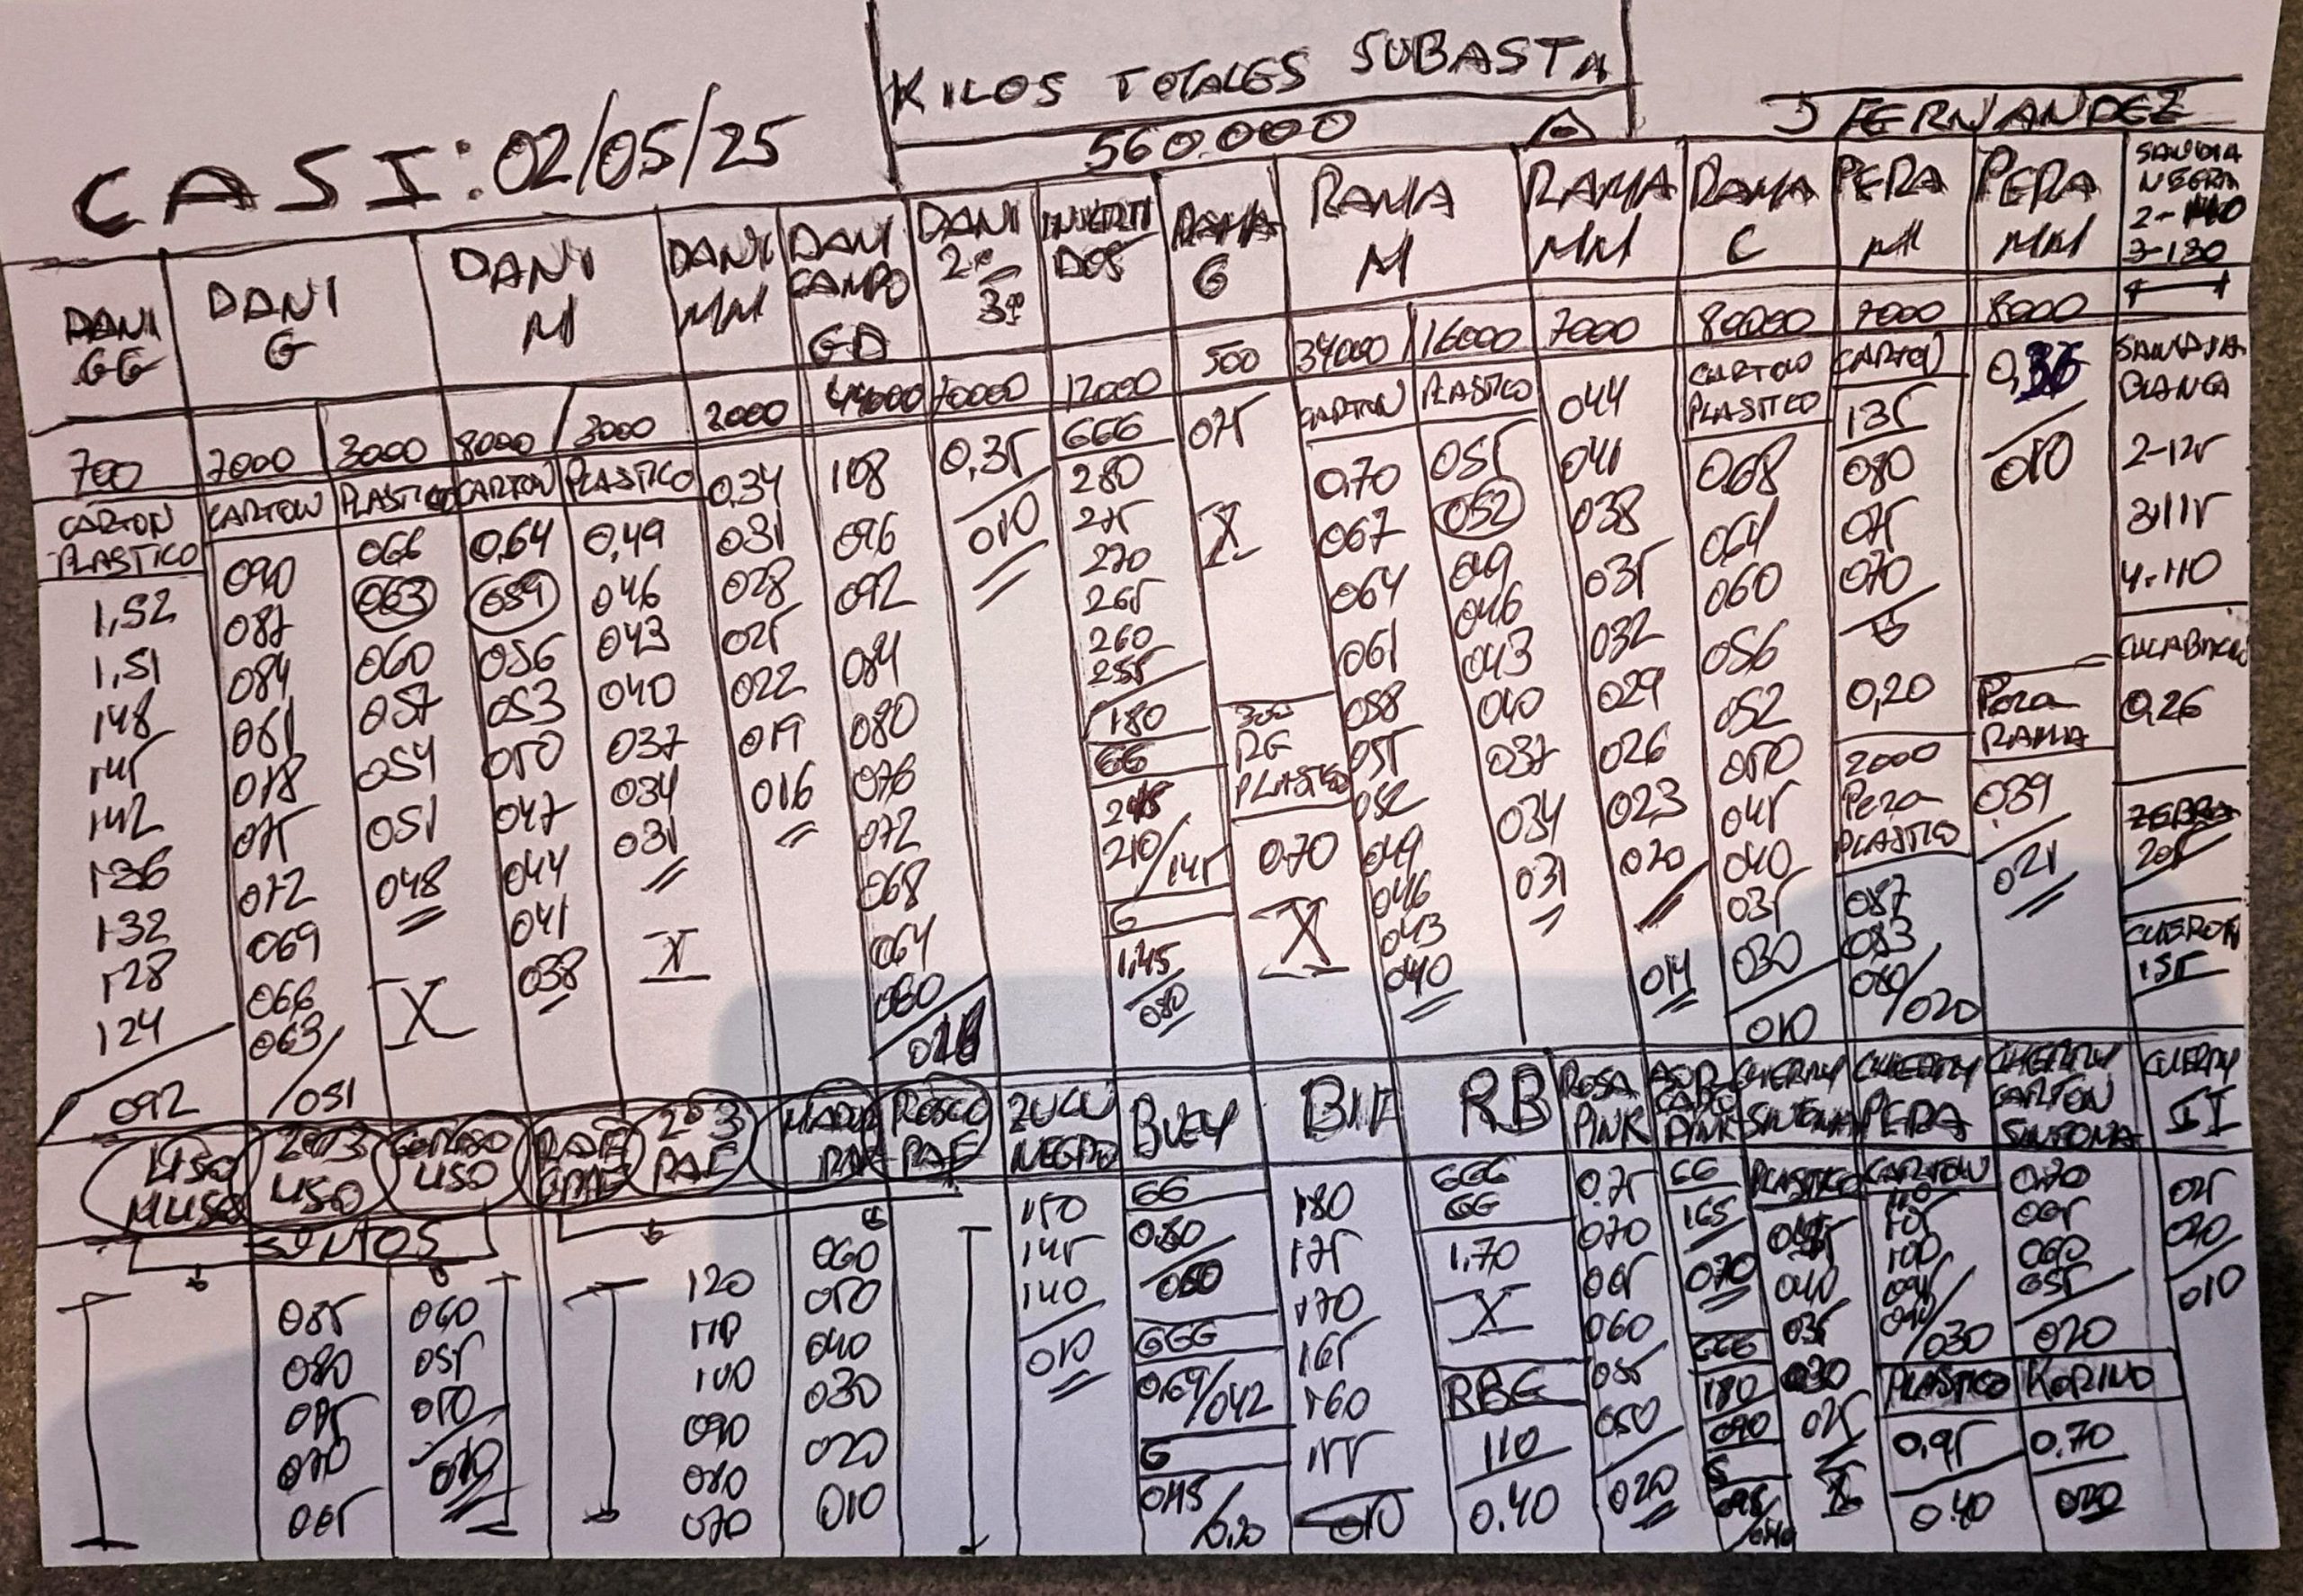 KILOS TOTALES SUBASTA
560.000
CASI: 02/05/25
J FERNANDEZ
DANI GG
700
CARTON
PLASTICO
1,52
1,51
148
145
142
136
132
128
124
092
DANI G
7000 3000
CARTON PLASTICO
090 066
087 063
084 060
081 057
078 054
075 051
072 048
069
066 X
063
051
DANI M
8000 3000
CARTON PLASTICO
0,64 0,49
059 046
056 043
053 040
050 037
047 034
044 031
041
038 X
DANI MM
2000
0,34
031
028
025
022
019
016
DANI CAMPO GD
44000
108
096
092
084
080
076
072
068
064
060
DANI 2ª 3ª
0,35
010
INVERTIDOS
12000
GGG
280
275
270
265
260
255
180
GG
210/145
G
1,45
080
RAMA G
500
075
X
300
RG
PLASTICO
0,70
X
RAMA M
34000 16000
CARTON PLASTICO
0,70 055
067 052
064 049
061 046
058 043
055 040
052 037
049 034
046 031
043
040
RAMA MM
7000
044
041
038
035
032
029
026
023
020
014
RAMA C
80000
CARTON
PLASTICO
068
064
060
056
052
050
045
040
035
030
010
PERA M
7000
CARTON
135
080
075
070
0,20
2000
Pera
PLASTICO
087
083
080/020
PERA MM
8000
0,36
010
Pera
RAMA
039
021
SANDIA
NEGRA
2-140
3-130
SANDIA
BLANCA
2-125
3-115
4-110
CALABACIN
0,26
ZEBRA
205
155
LISO
M LISO
2ª3 LISO
085
080
075
070
065
GORDO LISO
060
055
050
010
PINTOS
RAF
2ª3 RAF
120
110
100
090
080
070
MARU RAF
060
050
040
030
020
010
ROSCO RAF
ZULU NEGRO
150
145
140
010
BUEY
GG
0,80
060
GGG
0,69/042
G
045
0,20
BIF
180
175
170
165
160
155
010
RB
GGG
GG
1,70
X
RBG
110
0.40
ROSA PINK
0.75
070
065
060
055
050
020
PINK
GG
165
070
GGG
180
090
CHERRY SINTONIA
PLASTICO
040
035
030
025
X
CHERRY PERA
CARTON
105
100
095
090/030
PLASTICO
0,95
0.40
CHERRY CARTON SINTONIA
0.70
065
060
055
020
KORINO
0.70
020
CHERRY II
025
020
010